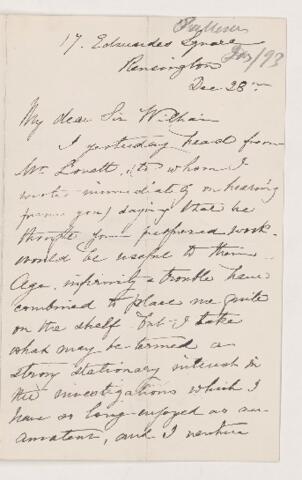 Jan/93
17. Edwardes Square
Kensington
Dec 28th
My dear Sir William
I yesterday heard from
Mr Lovett, (to whom I
wrote immediately on hearing
from you) saying that he
thought your proposed work
would be useful to them.
Age, infirmity & trouble have
combined to place me quite
on the shelf but I take
what may be termed a
strong stationary interest in
the investigations which I
have so long enjoyed as an
amateur, and I venture